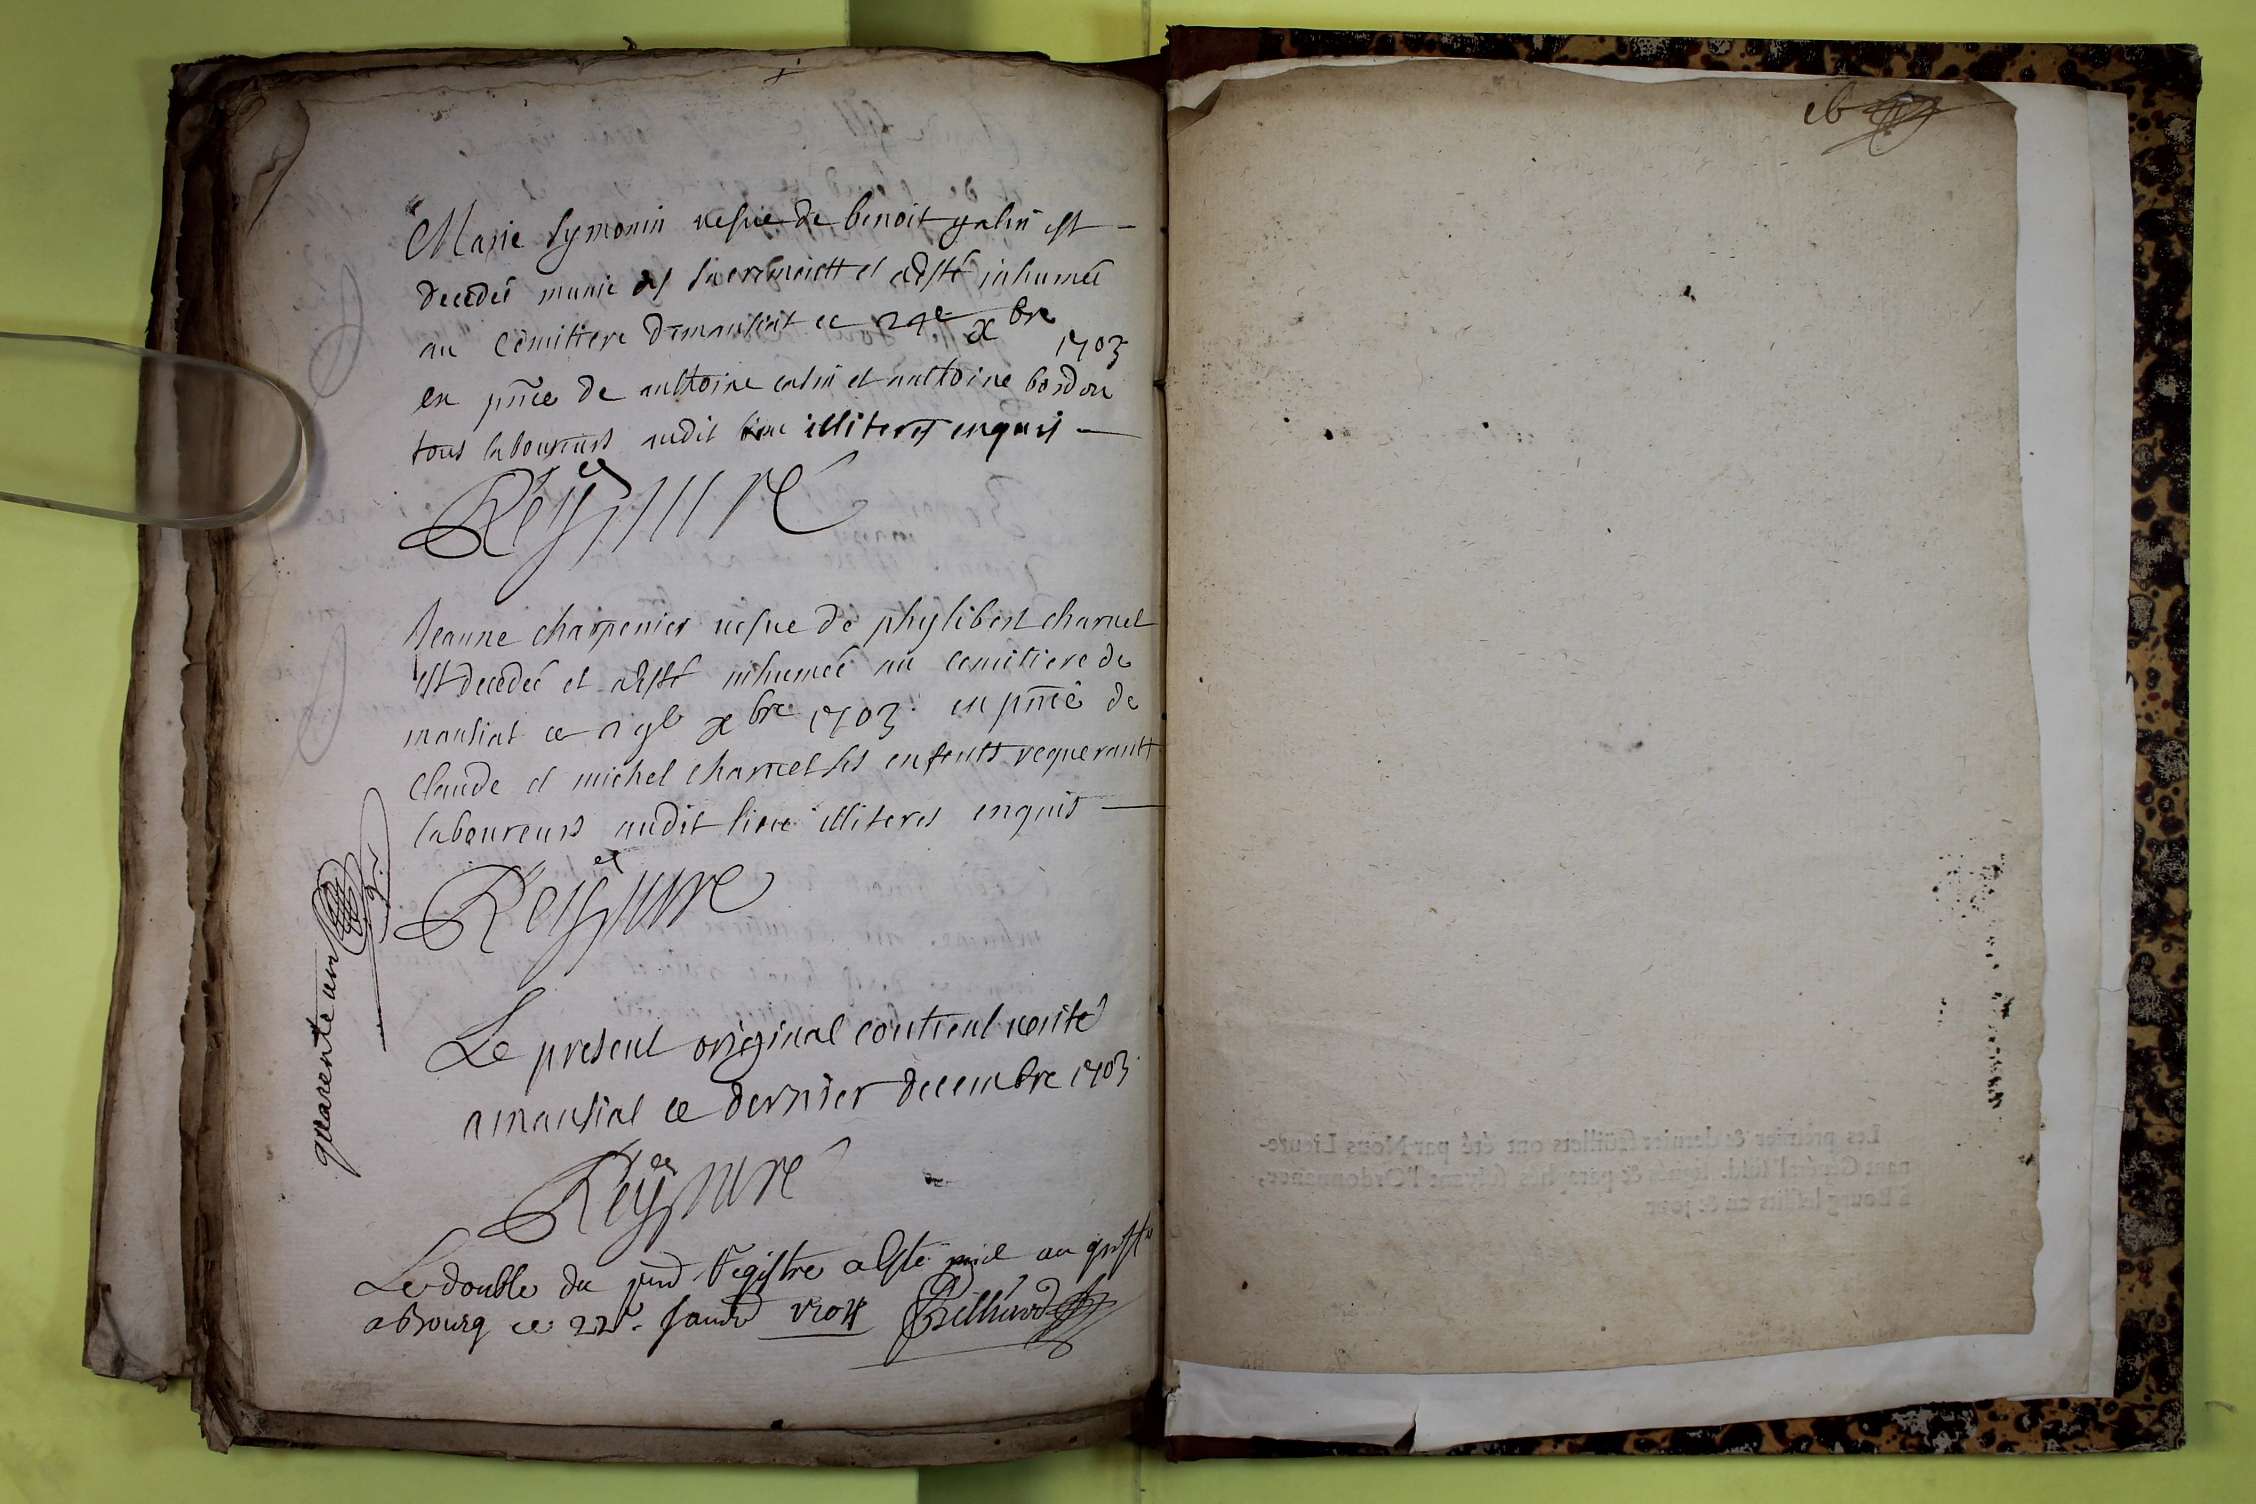 Marie Symonin vesve de benoit galin est
decedeé munie des sacrements et a esté inhumeé
au cemitiere de mantiat ce 24e xbre 1703
en pnce de anthoine et anthoine bordon
tous laboureurs audit lieu illiteres enquis
Reyssure
Jeanne charpenier vesve de phylibert charnet
est decedeé et a esté inhumeé au cemitiere de
mansiat ce xbre 1703 en pnce de
claude et michel charnet ses enfents requerants
laboureurs audit lieu illiteres enquis
Reyssure
quarente un
Le present original contient verité
a mansiat ce dernier decembre 1703
Reyssure
Le double du pnt Registre a esté mis au greffe
a Bourg ce 22e. Janvr 1704
Les prémier & dernier feüillets ont été par Nous Lieute-
nant Général susd. signés & paraphés suivant l'Ordonnance,
à Bourg lesdits an & jour